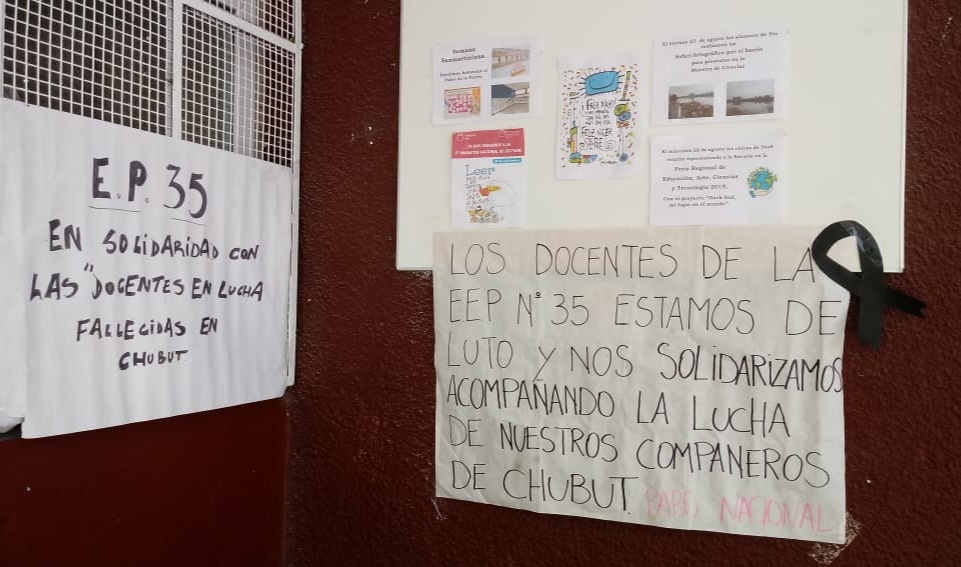 E.P. 35
EN SOLIDARIDAD CON
LAS "DOCENTES EN LUCHA
FALLECIDAS EN
CHUBUT
Semana
Sanmartiniana
Rendimos homenaje al
Padre de la Patria
Leer
FELIZ
El viernes 21 de agosto los alumnos de 5to
realizaron un
Safari fotográfico por el barrio
para presentar en la
Muestra de Ciencias
El miércoles 28 de agosto los chicos de
estarán representando a la Escuela en la
Feria Regional de
Educación, Arte, Ciencias
y Tecnología 2019,
Con el proyecto "Dock Sud,
mi lugar en el mundo".
LOS DOCENTES DE LA
EEP Nº 35 ESTAMOS DE
LUTO Y NOS SOLIDARIZAMOS
ACOMPAÑANDO LA LUCHA
DE NUESTROS COMPAÑEROS
DE CHUBUT. PARO NACIONAL